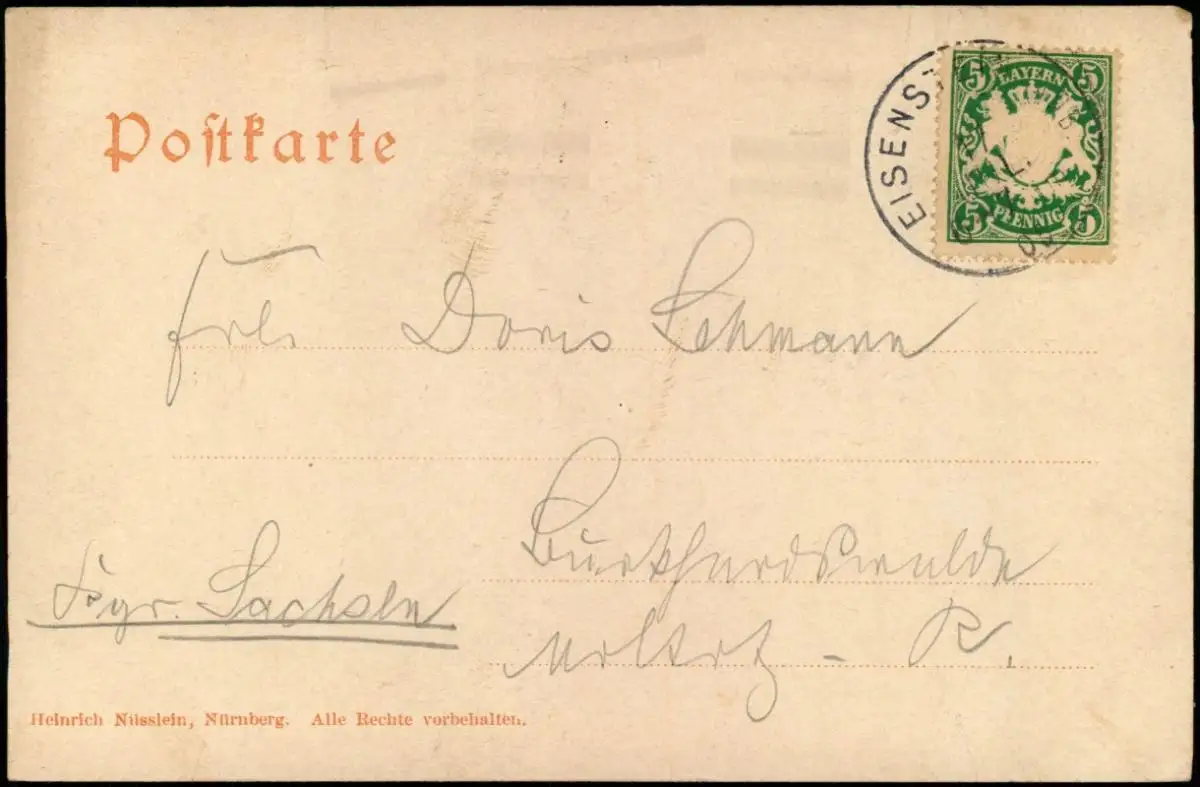 Postkarte
EISENST
5 BAYERN 5
5 PFENNIG 5
Frln Doris Lehmann
Burkhardswalde
Kgr. Sachsen
- R.
Heinrich Nüsslein, Nürnberg. Alle Rechte vorbehalten.